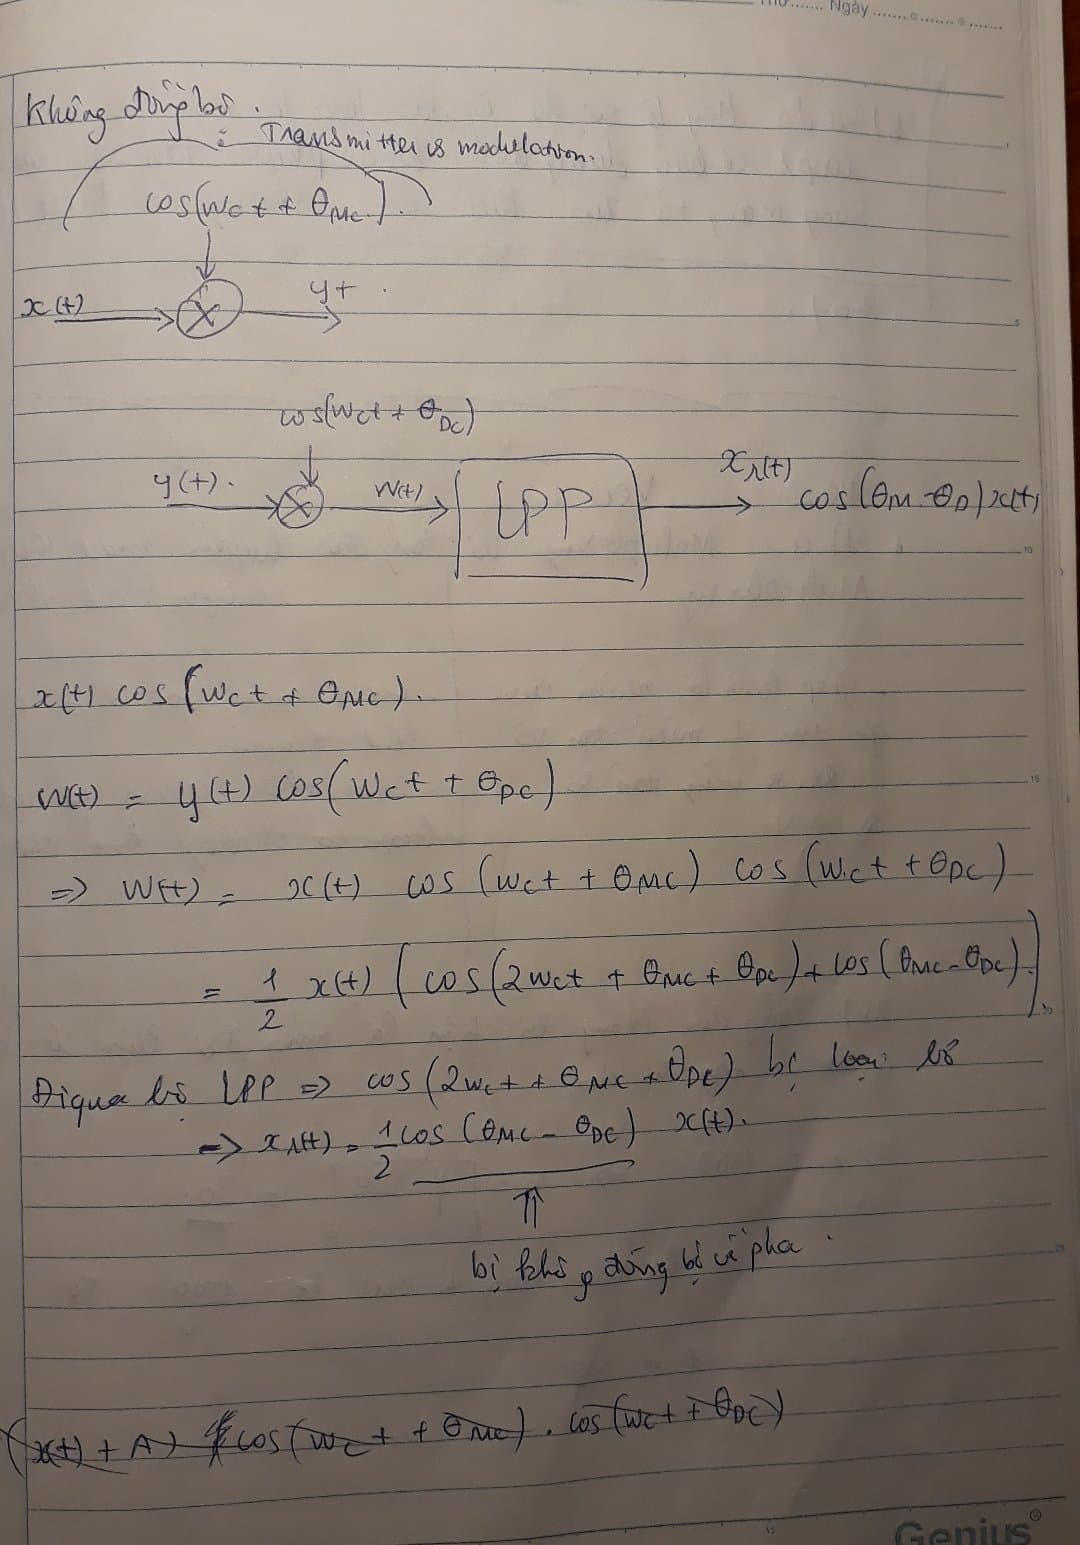 Thứ ....... Ngày ....................
Không đồng bộ.
: Transmitter is modulation.
cos(Wct + θMc).
x(t)
y+.
cos(Wct + θDC)
y(t).
W(t)
LPP
x₁(t)
cos(θM-θD)x(t)
x(t) cos(Wct + θMC).
W(t) = y(t) cos(Wct + θDC)
=> W(t) = x(t) cos (Wct + θMC) cos (Wct + θDC)
= 1/2 x(t) (cos(2Wct + θMC + θDC) + cos(θMC - θDC))
Đi qua bộ LPP => cos(2Wct + θMC + θDC) bị loại bỏ
=> x₁(t) = 1/2 cos (θMC - θDC) x(t).
⇑
bị không đồng bộ về pha.
(x(t) + A) cos(Wct + θMC). cos(Wct + θDC)
Genius®